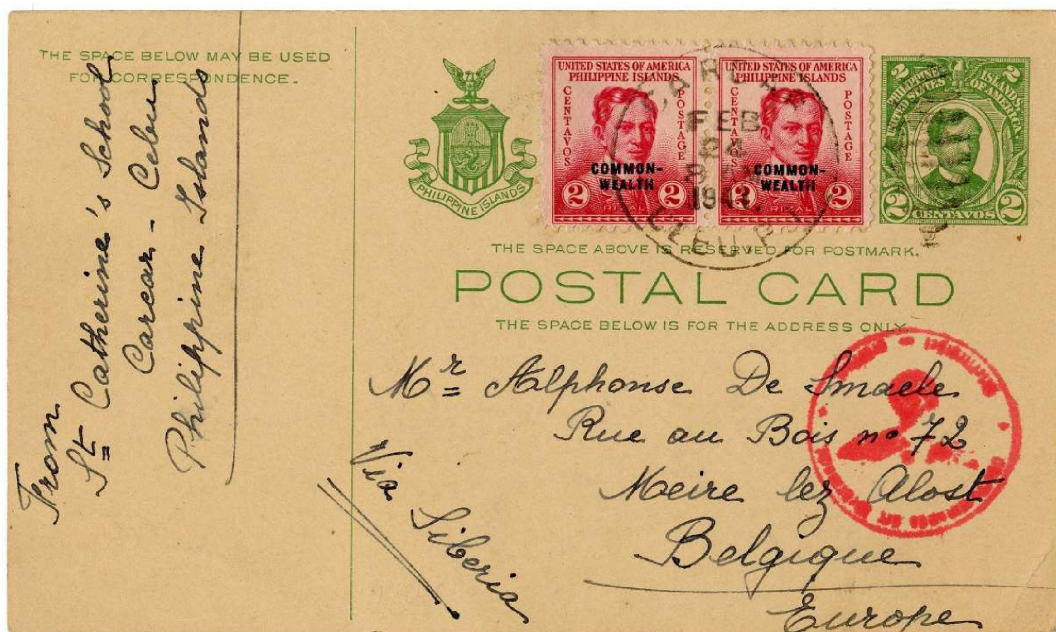 THE SPACE BELOW MAY BE USED
FOR CORRESPONDENCE.
From
St Catherine's School
Carcar - Cebu
Philippine Islands
PHILIPPINE ISLANDS
UNITED STATES OF AMERICA
PHILIPPINE ISLANDS
CENTAVOS
POSTAGE
COMMON-
WEALTH
2 2
UNITED STATES OF AMERICA
PHILIPPINE ISLANDS
CENTAVOS
POSTAGE
COMMON-
WEALTH
2 2
CARCAR
FEB
24
CEBU, P.I.
2 2
PHILIPPINE ISLANDS
UNITED STATES OF AMERICA
2 CENTAVOS 2
THE SPACE ABOVE IS RESERVED FOR POSTMARK.
POSTAL CARD
THE SPACE BELOW IS FOR THE ADDRESS ONLY.
Mr Alphonse De Smaele
Rue au Bois no 72
Meire lez Alost
Belgique
Europe
Via Siberia